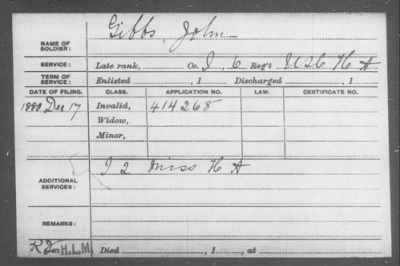 NAME OF SOLDIER: Gibbs, John
SERVICE: Late rank, Co. I, 6 Reg't USC H A
TERM OF SERVICE: Enlisted , 1 Discharged , 1
DATE OF FILING. CLASS. APPLICATION NO. LAW. CERTIFICATE NO.
1880 Dec 17 Invalid, 414268
Widow,
Minor,
ADDITIONAL SERVICES: I 2 Miss H A
REMARKS:
H.L.M. Died , 1 , at